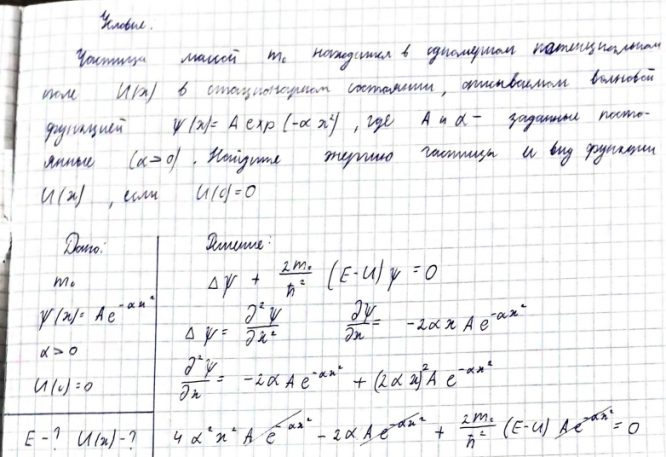 Условие:
Частица массой m₀ находится в одномерном потенциальном
поле U(x) в стационарном состоянии, описываемом волновой
функцией ψ(x) = A exp(-αx²), где A и α - заданные посто-
янные (α>0). Найдите энергию частицы и вид функции
U(x), если U(0)=0
Дано:
m₀
ψ(x)= A e^{-αx²}
α>0
U(0)=0
E-? U(x)-?
Решение:
Δψ + 2m₀/ħ² (E-U)ψ = 0
Δψ = ∂²ψ/∂x² ∂ψ/∂x = -2αx A e^{-αx²}
∂²ψ/∂x = -2αA e^{-αx²} + (2αx)² A e^{-αx²}
4α²x² A e^{-αx²} - 2αA e^{-αx²} + 2m₀/ħ² (E-U) A e^{-αx²} = 0